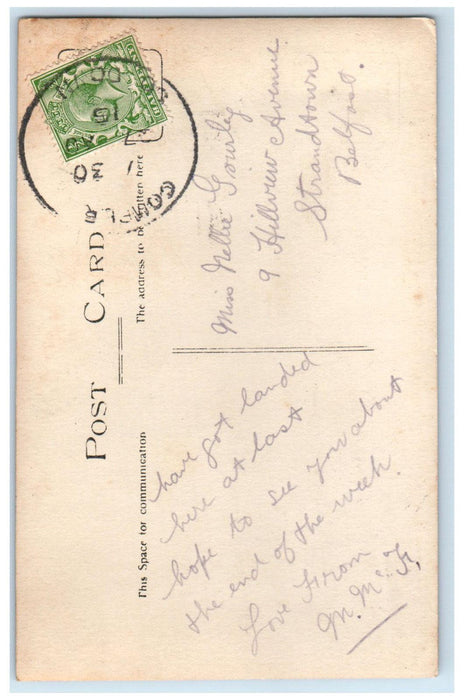 POST CARD
This Space for communication
The address to be written here
have got landed
here at last
hope to see you about
the end of the week.
Love From
M. McF.
Miss Nellie Gourley
9 Hillview Avenue
Strandtown
Belfast.